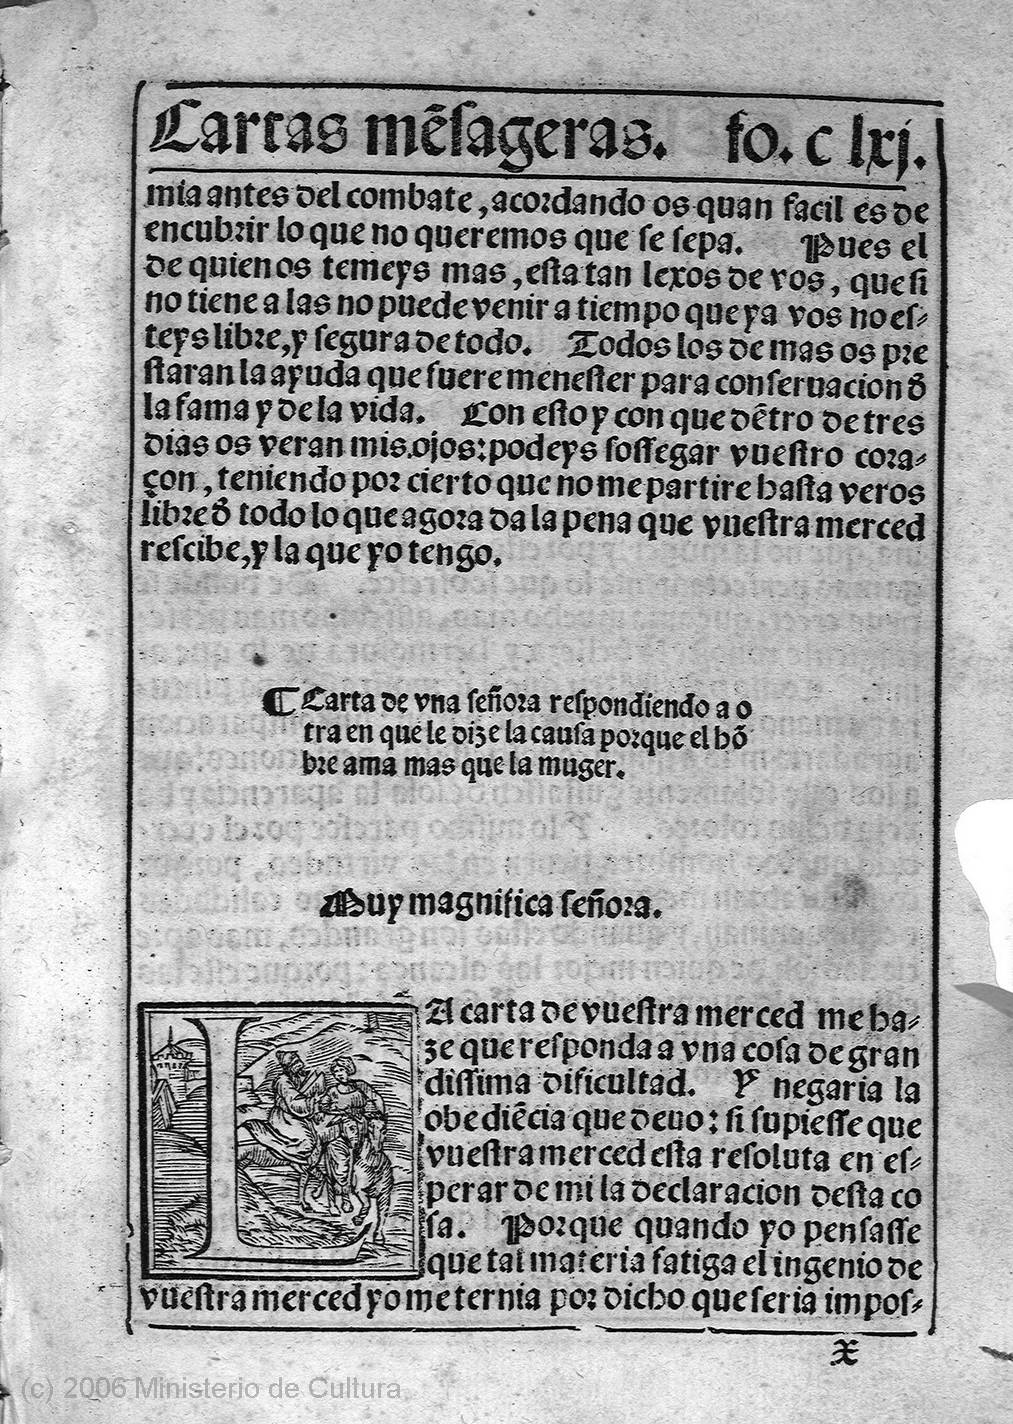 Cartas mẽsageras. fo. c lxj.
mia antes del combate, acordando os quan facil es de
encubrir lo que no queremos que se sepa. Pues el
de quien os temeys mas, esta tan lexos de vos, que si
no tiene alas no puede venir a tiempo que ya vos no es-
teys libre, y segura de todo. Todos los de mas os pre
staran la ayuda que fuere menester para conseruacion d̃
la fama y de la vida. Con esto y con que dẽtro de tres
dias os veran mis ojos: podeys sossegar vuestro cora-
çon, teniendo por cierto que no me partire hasta veros
libre d̃ todo lo que agora da la pena que vuestra merced
rescibe, y la que yo tengo.
¶ Carta de vna señora respondiendo a o
tra en que le dize la causa porque el hõ
bre ama mas que la muger.
Muy magnifica señora.
LA carta de vuestra merced me ha-
ze que responda a vna cosa de gran
dissima dificultad. Y negaria la
obediẽcia que deuo: si supiesse que
vuestra merced esta resoluta en es-
perar de mi la declaracion desta co
sa. Porque quando yo pensasse
que tal materia fatiga el ingenio de
vuestra merced yo me ternia por dicho que seria impos-
x
(c) 2006 Ministerio de Cultura